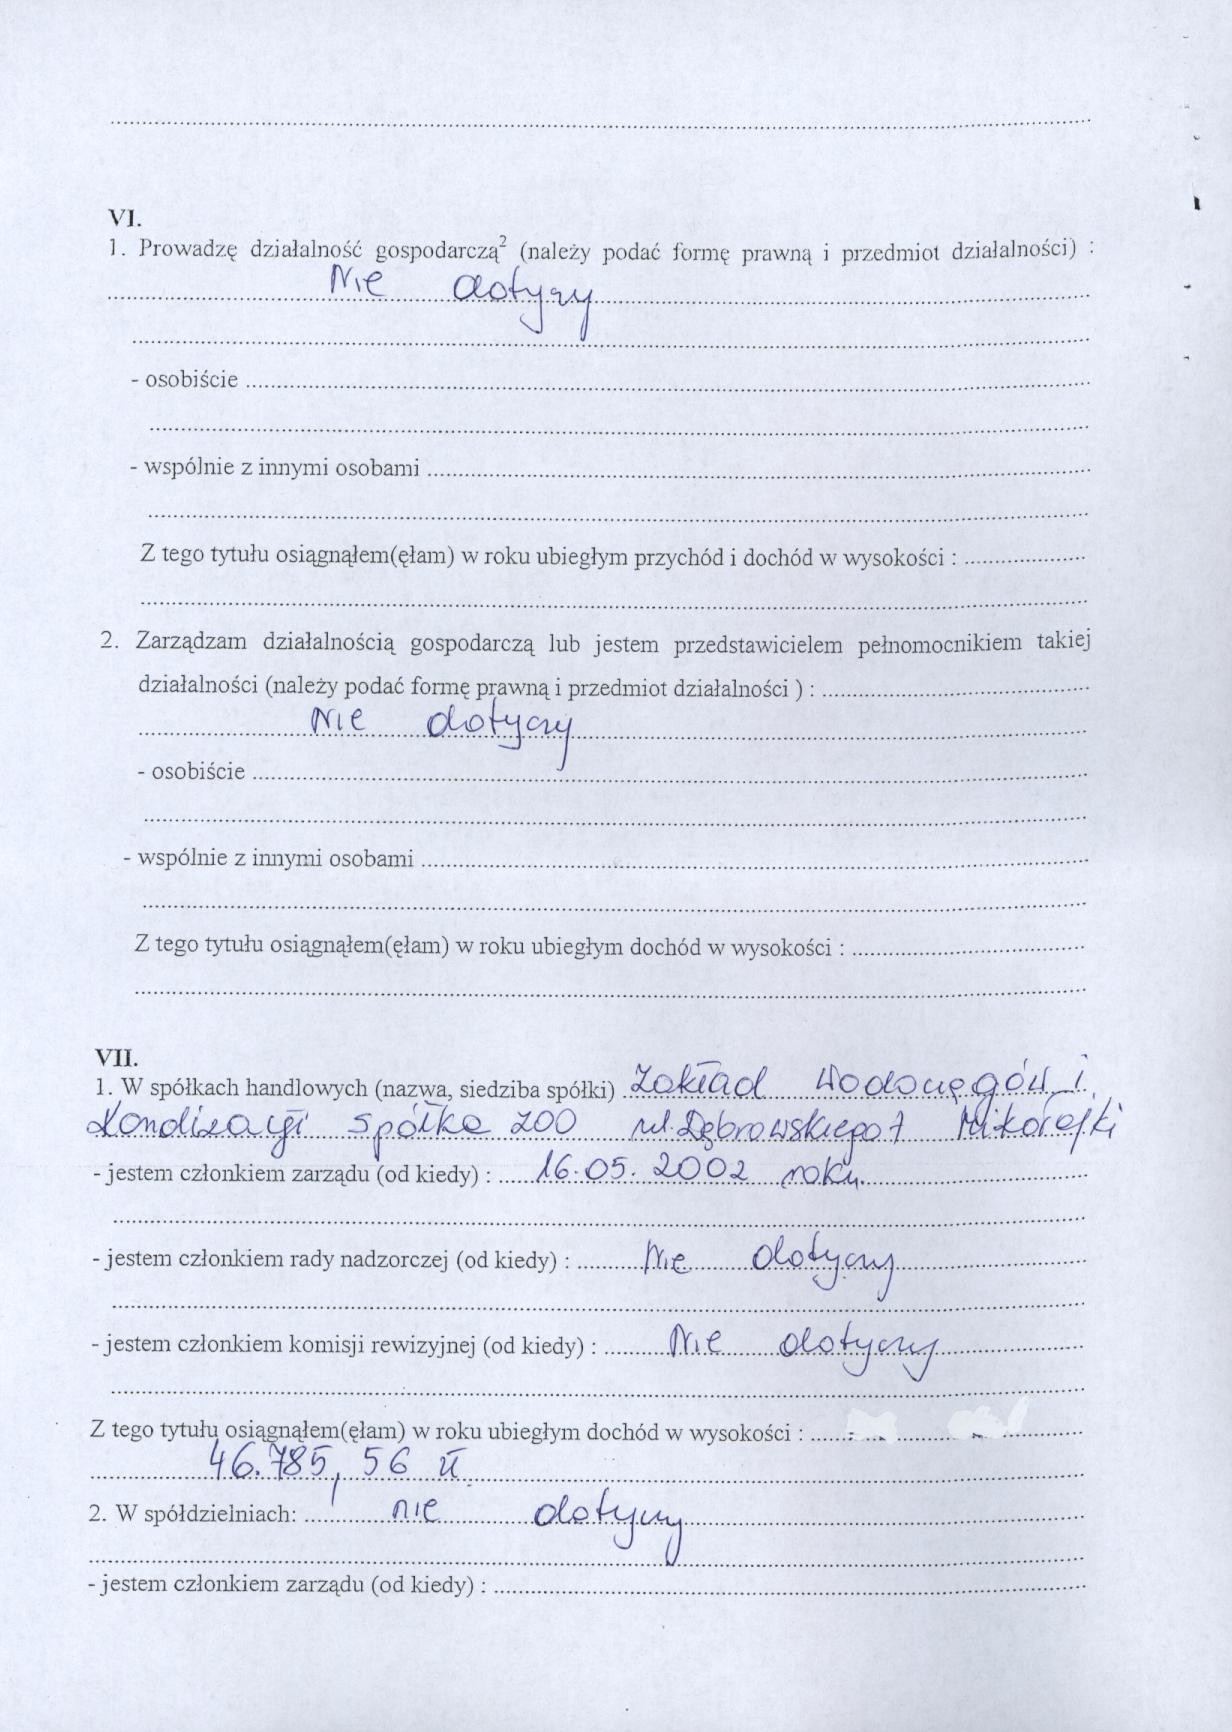 VI.
1. Prowadzę działalność gospodarczą² (należy podać formę prawną i przedmiot działalności) :
Nie dotyczy
- osobiście
- wspólnie z innymi osobami
Z tego tytułu osiągnąłem(ęłam) w roku ubiegłym przychód i dochód w wysokości :
2. Zarządzam działalnością gospodarczą lub jestem przedstawicielem pełnomocnikiem takiej
działalności (należy podać formę prawną i przedmiot działalności ) :
Nie dotyczy
- osobiście
- wspólnie z innymi osobami
Z tego tytułu osiągnąłem(ęłam) w roku ubiegłym dochód w wysokości :
VII.
1. W spółkach handlowych (nazwa, siedziba spółki) Zakład Wodociągów i
Kanalizacji spółka zoo ul. Dąbrowskiego 7 Mikołajki
- jestem członkiem zarządu (od kiedy) : 16.05.2002 roku.
- jestem członkiem rady nadzorczej (od kiedy) : Nie dotyczy
- jestem członkiem komisji rewizyjnej (od kiedy) : Nie dotyczy
Z tego tytułu osiągnąłem(ęłam) w roku ubiegłym dochód w wysokości :
46.785,56 zł
2. W spółdzielniach: nie dotyczy
- jestem członkiem zarządu (od kiedy) :